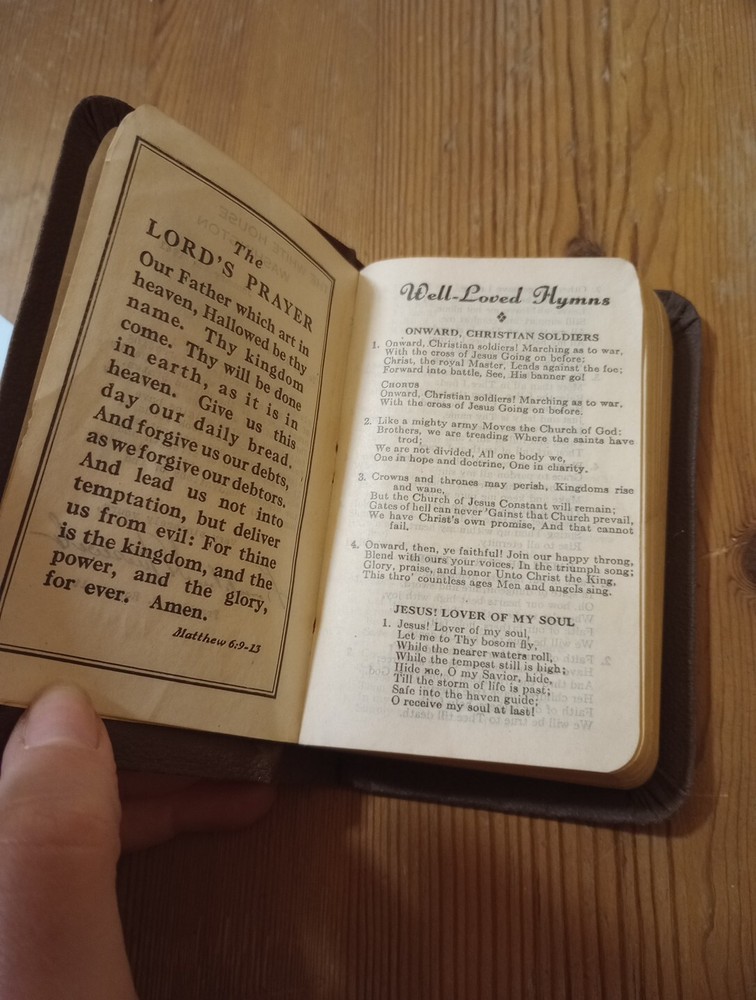 The
LORD'S PRAYER
Our Father which art in
heaven, Hallowed be thy
name. Thy kingdom
come. Thy will be done
in earth, as it is in
heaven. Give us this
day our daily bread.
And forgive us our debts,
as we forgive our debtors.
And lead us not into
temptation, but deliver
us from evil: For thine
is the kingdom, and the
power, and the glory,
for ever. Amen.
Matthew 6:9-13
Well-Loved Hymns
ONWARD, CHRISTIAN SOLDIERS
1. Onward, Christian soldiers! Marching as to war,
With the cross of Jesus Going on before;
Christ, the royal Master, Leads against the foe;
Forward into battle, See, His banner go!
CHORUS
Onward, Christian soldiers! Marching as to war,
With the cross of Jesus Going on before.
2. Like a mighty army Moves the Church of God;
Brothers, we are treading Where the saints have
trod;
We are not divided, All one body we,
One in hope and doctrine, One in charity.
3. Crowns and thrones may perish, Kingdoms rise
and wane,
But the Church of Jesus Constant will remain;
Gates of hell can never 'Gainst that Church prevail,
We have Christ's own promise, And that cannot
fail,
4. Onward, then, ye faithful! Join our happy throng,
Blend with ours your voices, In the triumph song;
Glory, praise, and honor Unto Christ the King,
This thro' countless ages Men and angels sing.
JESUS! LOVER OF MY SOUL
1. Jesus! Lover of my soul,
Let me to Thy bosom fly,
While the nearer waters roll,
While the tempest still is high;
Hide me, O my Savior, hide,
Till the storm of life is past;
Safe into the haven guide;
O receive my soul at last!